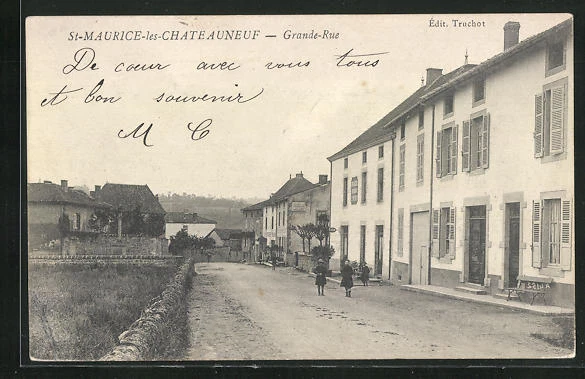 St-MAURICE-les-CHATEAUNEUF — Grande-Rue
Édit. Truchot
De cœur avec vous tous
et bon souvenir
M C